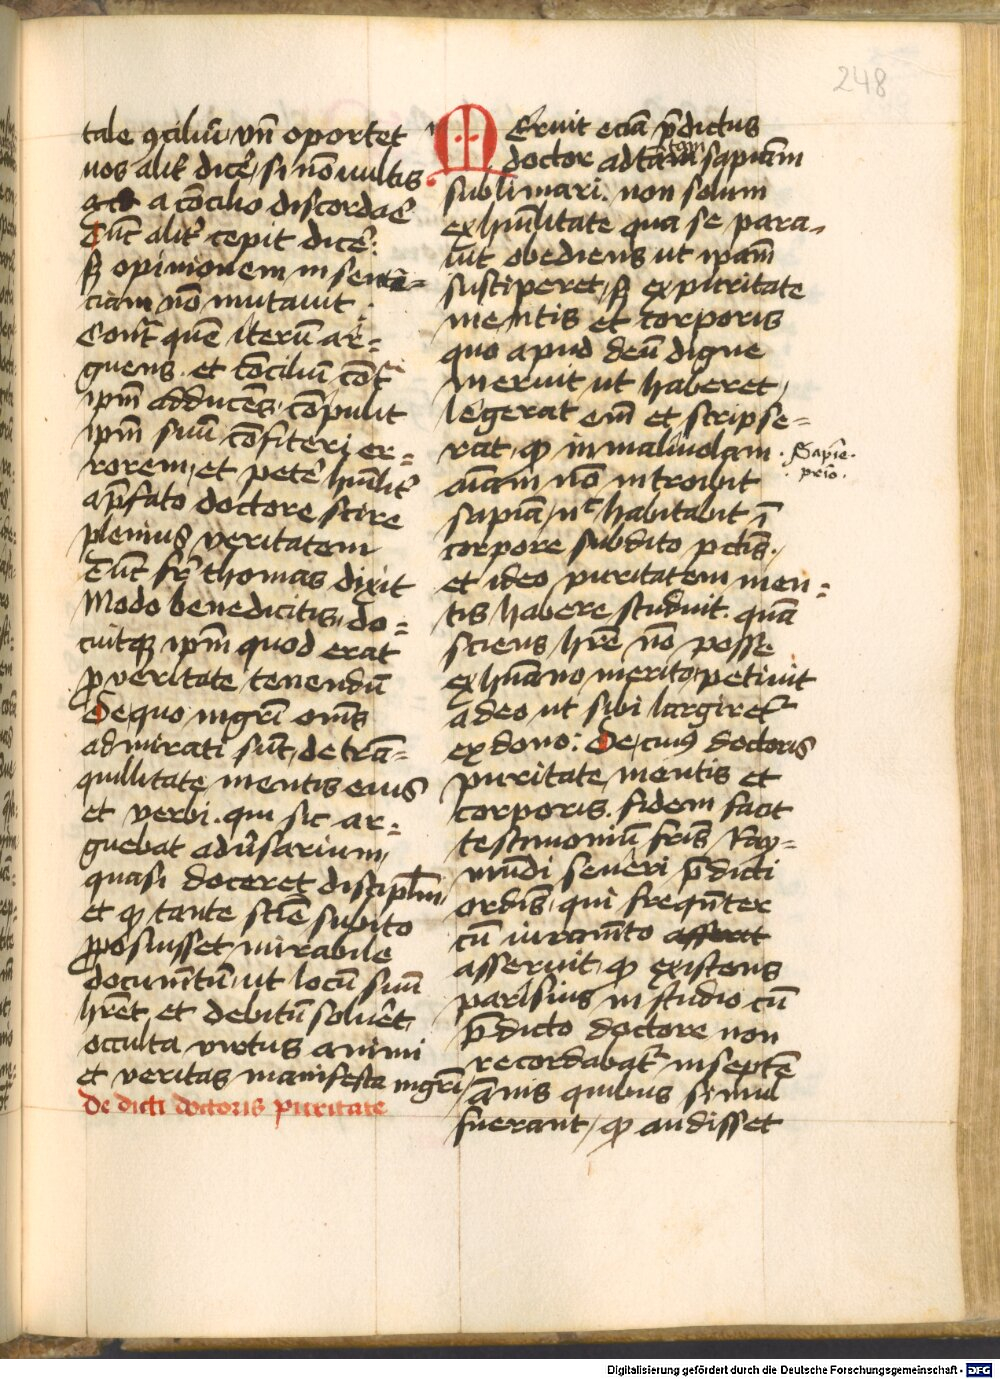 248
tale ɔciliū vn̄ oportet
uos alit̄ dicē si nō uultis
a cōcilio discordaē
Tūc alit̄ cepit dicē:
s̄ opinionem in senten=
ciam nō mutauit.
Cont̄ quē iterū ar=
guens. et cōciliū cōt̄
ip̄m adducens, cōpulit
ip̄m suū cōfiteri er=
rorem, et petē hūilit̄
a p̄fato doctore scire
plenius veritatem
Tūc fr̄ thomas dixit
Modo benedicitis, do=
cuitqꝫ ip̄m quod erat
ꝓ veritate tenendū
De quo mgr̄i om̄s
admirati sūt, de trā=
quillitate mentis eius
et verbi. qui sic ar=
guebat adūsarium,
quasi doceret discipl̄m,
et ꝙ tante sciē subito
ꝓposuisset mirabile
documtū, ut locū suū
hrēt, et debitū soluēt,
occulta virtus animi
et veritas manifesta mgr̄i
De dicti doctoris puritate
MEruit eciā p̄dictus
doctor ad tātam sapiam
sublimari. non solum
ex hūilitate qua se para=
uit obediens ut ip̄am
susciperet, s̄ ex puritate
mentis et corporis
quo apud deū digne
meruit ut haberet,
legerat em̄ et scripse=
rat, ꝙ in maliuolam.
aīam nō introibit
sapiā, nc̄ habitabit ī
corpore subdito pctīs.
et ideo puritatem men=
tis habere studuit. quā
sciens hrē nō posse
ex huāno merito, petiuit
a deo ut sibi largiret̄
ex dono: De cuius doctoris
puritate mentis et
corporis. fidem facit
testimoniū fr̄is Ray=
mūdi seueri p̄dicti
ordīs, qui freqn̄ter
cū iuramto
asseruit, ꝙ existens
parisius in studio cū
p̄dicto doctore non
recordabat̄ in septē
ānis quibus simul
fuerant, ꝙ audisset
Sapīe.
prīo.
Digitalisierung gefördert durch die Deutsche Forschungsgemeinschaft - DFG